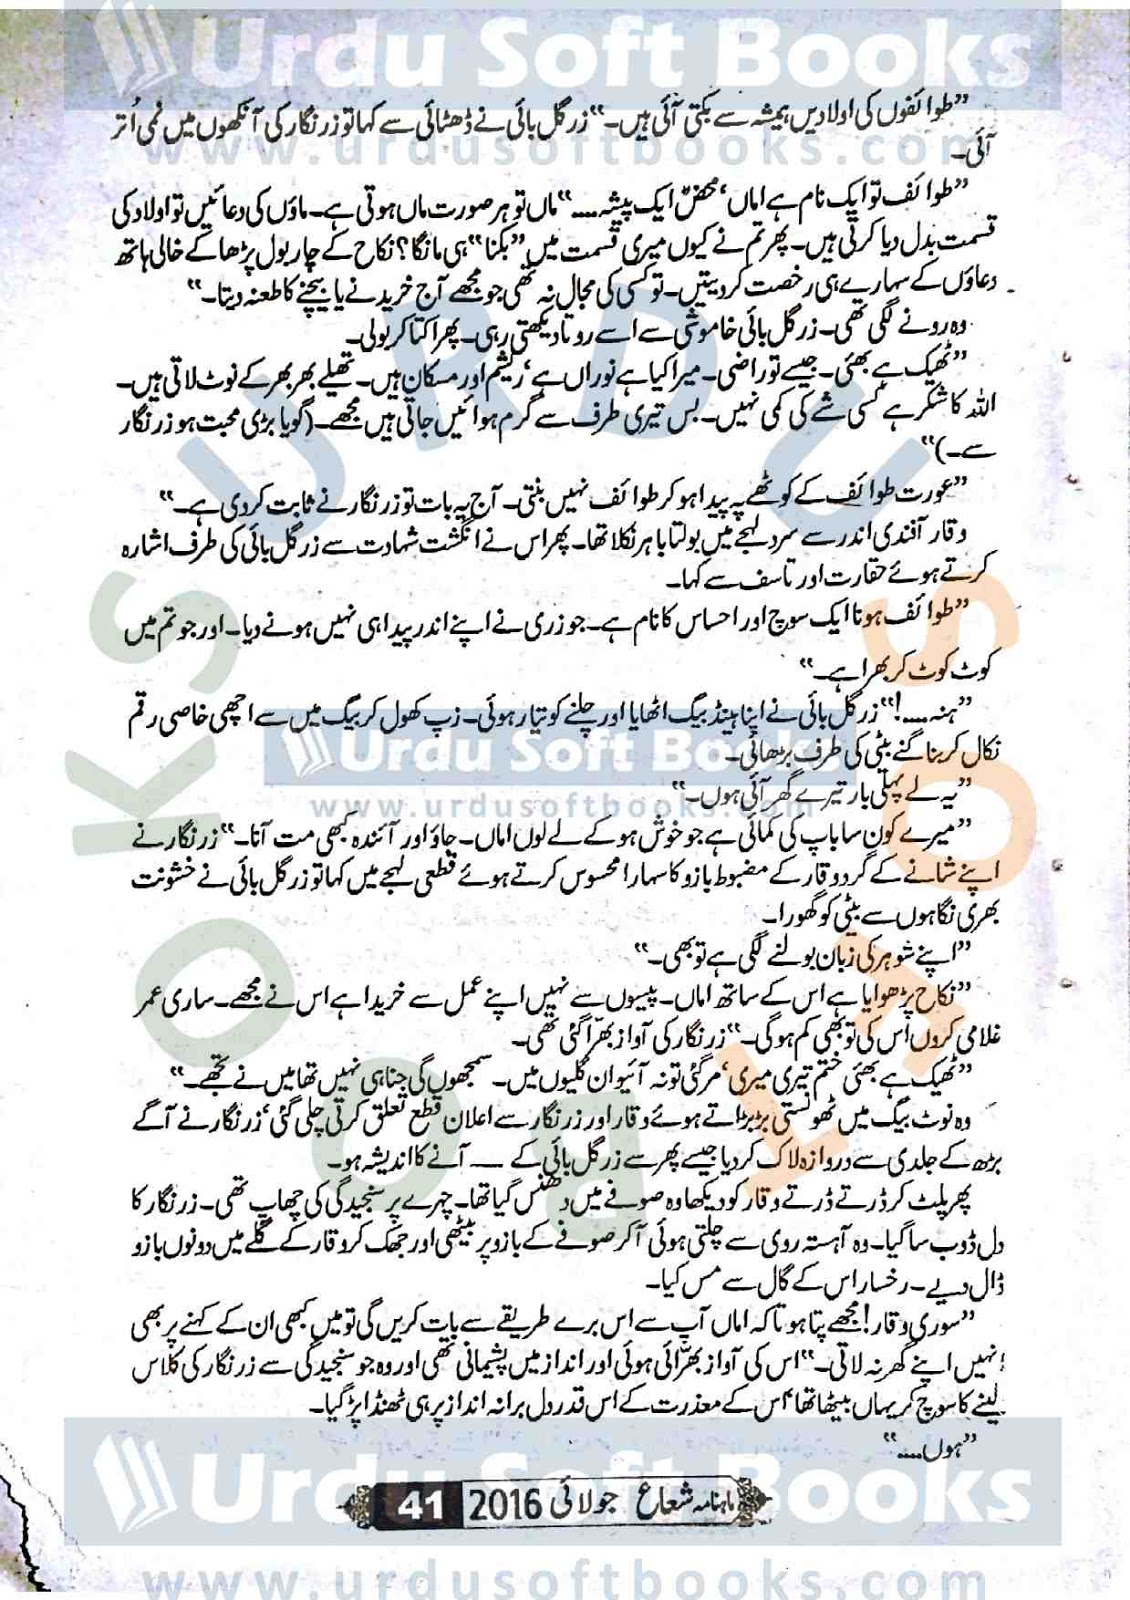 Urdu Soft Books
www.urdusoftbooks.com
”طوائفوں کی اولادیں ہمیشہ سے بکتی آئی ہیں۔“ زرگل بائی نے ڈھٹائی سے کہا تو زرنگار کی آنکھوں میں نمی اُتر
آئی۔
”طوائف تو ایک نام ہے اماں‘ محض ایک پیشہ....“ ماں تو ہر صورت ماں ہوتی ہے۔ ماؤں کی دعائیں تو اولاد کی
قسمت بدل دیا کرتی ہیں۔ پھر تم نے کیوں میری قسمت میں ”بکنا“ ہی مانگا؟ نکاح کے چار بول پڑھا کے خالی ہاتھ
دعاؤں کے سہارے ہی رخصت کر دیتیں۔ تو کسی کی مجال نہ تھی جو مجھے آج خریدنے یا بیچنے کا طعنہ دیتا۔“
وہ رونے لگی تھی۔ زرگل بائی خاموشی سے اسے روتا دیکھتی رہی۔ پھر اکتا کر بولی۔
”ٹھیک ہے بھئی۔ جیسے تو راضی۔ میرا کیا ہے نوراں ہے‘ ریشم اور مسکان ہیں۔ تھیلے بھر بھر کے نوٹ لاتی ہیں۔
اللہ کا شکر ہے کسی شے کی کمی نہیں۔ بس تیری طرف سے گرم ہوائیں جاتی ہیں مجھے۔ (گویا بڑی محبت ہو زرنگار
سے۔)“
”عورت طوائف کے کوٹھے پہ پیدا ہو کر طوائف نہیں بنتی۔ آج یہ بات تو زرنگار نے ثابت کر دی ہے۔“
وقار آفندی اندر سے سرد لہجے میں بولتا باہر نکلا تھا۔ پھر اس نے انگشت شہادت سے زرگل بائی کی طرف اشارہ
کرتے ہوئے حقارت اور تاسف سے کہا۔
”طوائف ہونا ایک سوچ اور احساس کا نام ہے۔ جو زری نے اپنے اندر پیدا ہی نہیں ہونے دیا۔ اور جو تم میں
کوٹ کوٹ کر بھرا ہے۔“
”ہنہ....!“ زرگل بائی نے اپنا ہینڈ بیگ اٹھایا اور چلنے کو تیار ہوئی۔ زپ کھول کر بیگ میں سے اچھی خاصی رقم
نکال کر بنا گنے بیٹی کی طرف بڑھائی۔
Urdu Soft Books
www.urdusoftbooks.com
”یہ لے پہلی بار تیرے گھر آئی ہوں۔“
”میرے کون سا باپ کی کمائی ہے جو خوش ہو کے لے لوں اماں۔ جاؤ اور آئندہ کبھی مت آنا۔“ زرنگار نے
اپنے شانے کے گرد وقار کے مضبوط بازو کا سہارا محسوس کرتے ہوئے قطعی لہجے میں کہا تو زرگل بائی نے خشونت
بھری نگاہوں سے بیٹی کو گھورا۔
”اپنے شوہر کی زبان بولنے لگی ہے تو بھی۔“
”نکاح پڑھوایا ہے اس کے ساتھ اماں۔ پیسوں سے نہیں اپنے عمل سے خریدا ہے اس نے مجھے۔ ساری عمر
غلامی کروں اس کی تو بھی کم ہو گی۔“ زرنگار کی آواز بھرّا گئی تھی۔
”ٹھیک ہے بھئی ختم تیری میری‘ مر گئی تو نہ آئیو ان گلیوں میں۔ سمجھوں گی جنا ہی نہیں تھا میں نے تجھے۔“
وہ نوٹ بیگ میں ٹھونستی بڑبڑاتے ہوئے وقار اور زرنگار سے اعلان قطع تعلق کرتی چلی گئی‘ زرنگار نے آگے
بڑھ کے جلدی سے دروازہ لاک کر دیا جیسے پھر سے زرگل بائی کے — آنے کا اندیشہ ہو۔
پھر پلٹ کر ڈرتے ڈرتے وقار کو دیکھا وہ صوفے میں دھنس گیا تھا۔ چہرے پر سنجیدگی کی چھاپ تھی۔ زرنگار کا
دل ڈوب سا گیا۔ وہ آہستہ روی سے چلتی ہوئی آ کر صوفے کے بازو پر بیٹھی اور جھک کر وقار کے گلے میں دونوں بازو
ڈال دیے۔ رخسار اس کے گال سے مس کیا۔
”سوری وقار! مجھے پتا ہوتا کہ اماں آپ سے اس برے طریقے سے بات کریں گی تو میں کبھی ان کے کہنے پر بھی
انہیں اپنے گھر نہ لاتی۔“ اس کی آواز بھرّائی ہوئی اور انداز میں پشیمانی تھی اور وہ جو سنجیدگی سے زرنگار کی کلاس
لینے کا سوچ کر یہاں بیٹھا تھا‘ اس کے معذرت کے اس قدر دل برانہ انداز پر ہی ٹھنڈا پڑ گیا۔
”ہوں....“
Urdu Soft Books
ماہنامہ شعاع جولائی 2016 41
www.urdusoftbooks.com
URDU SOFT BOOKS